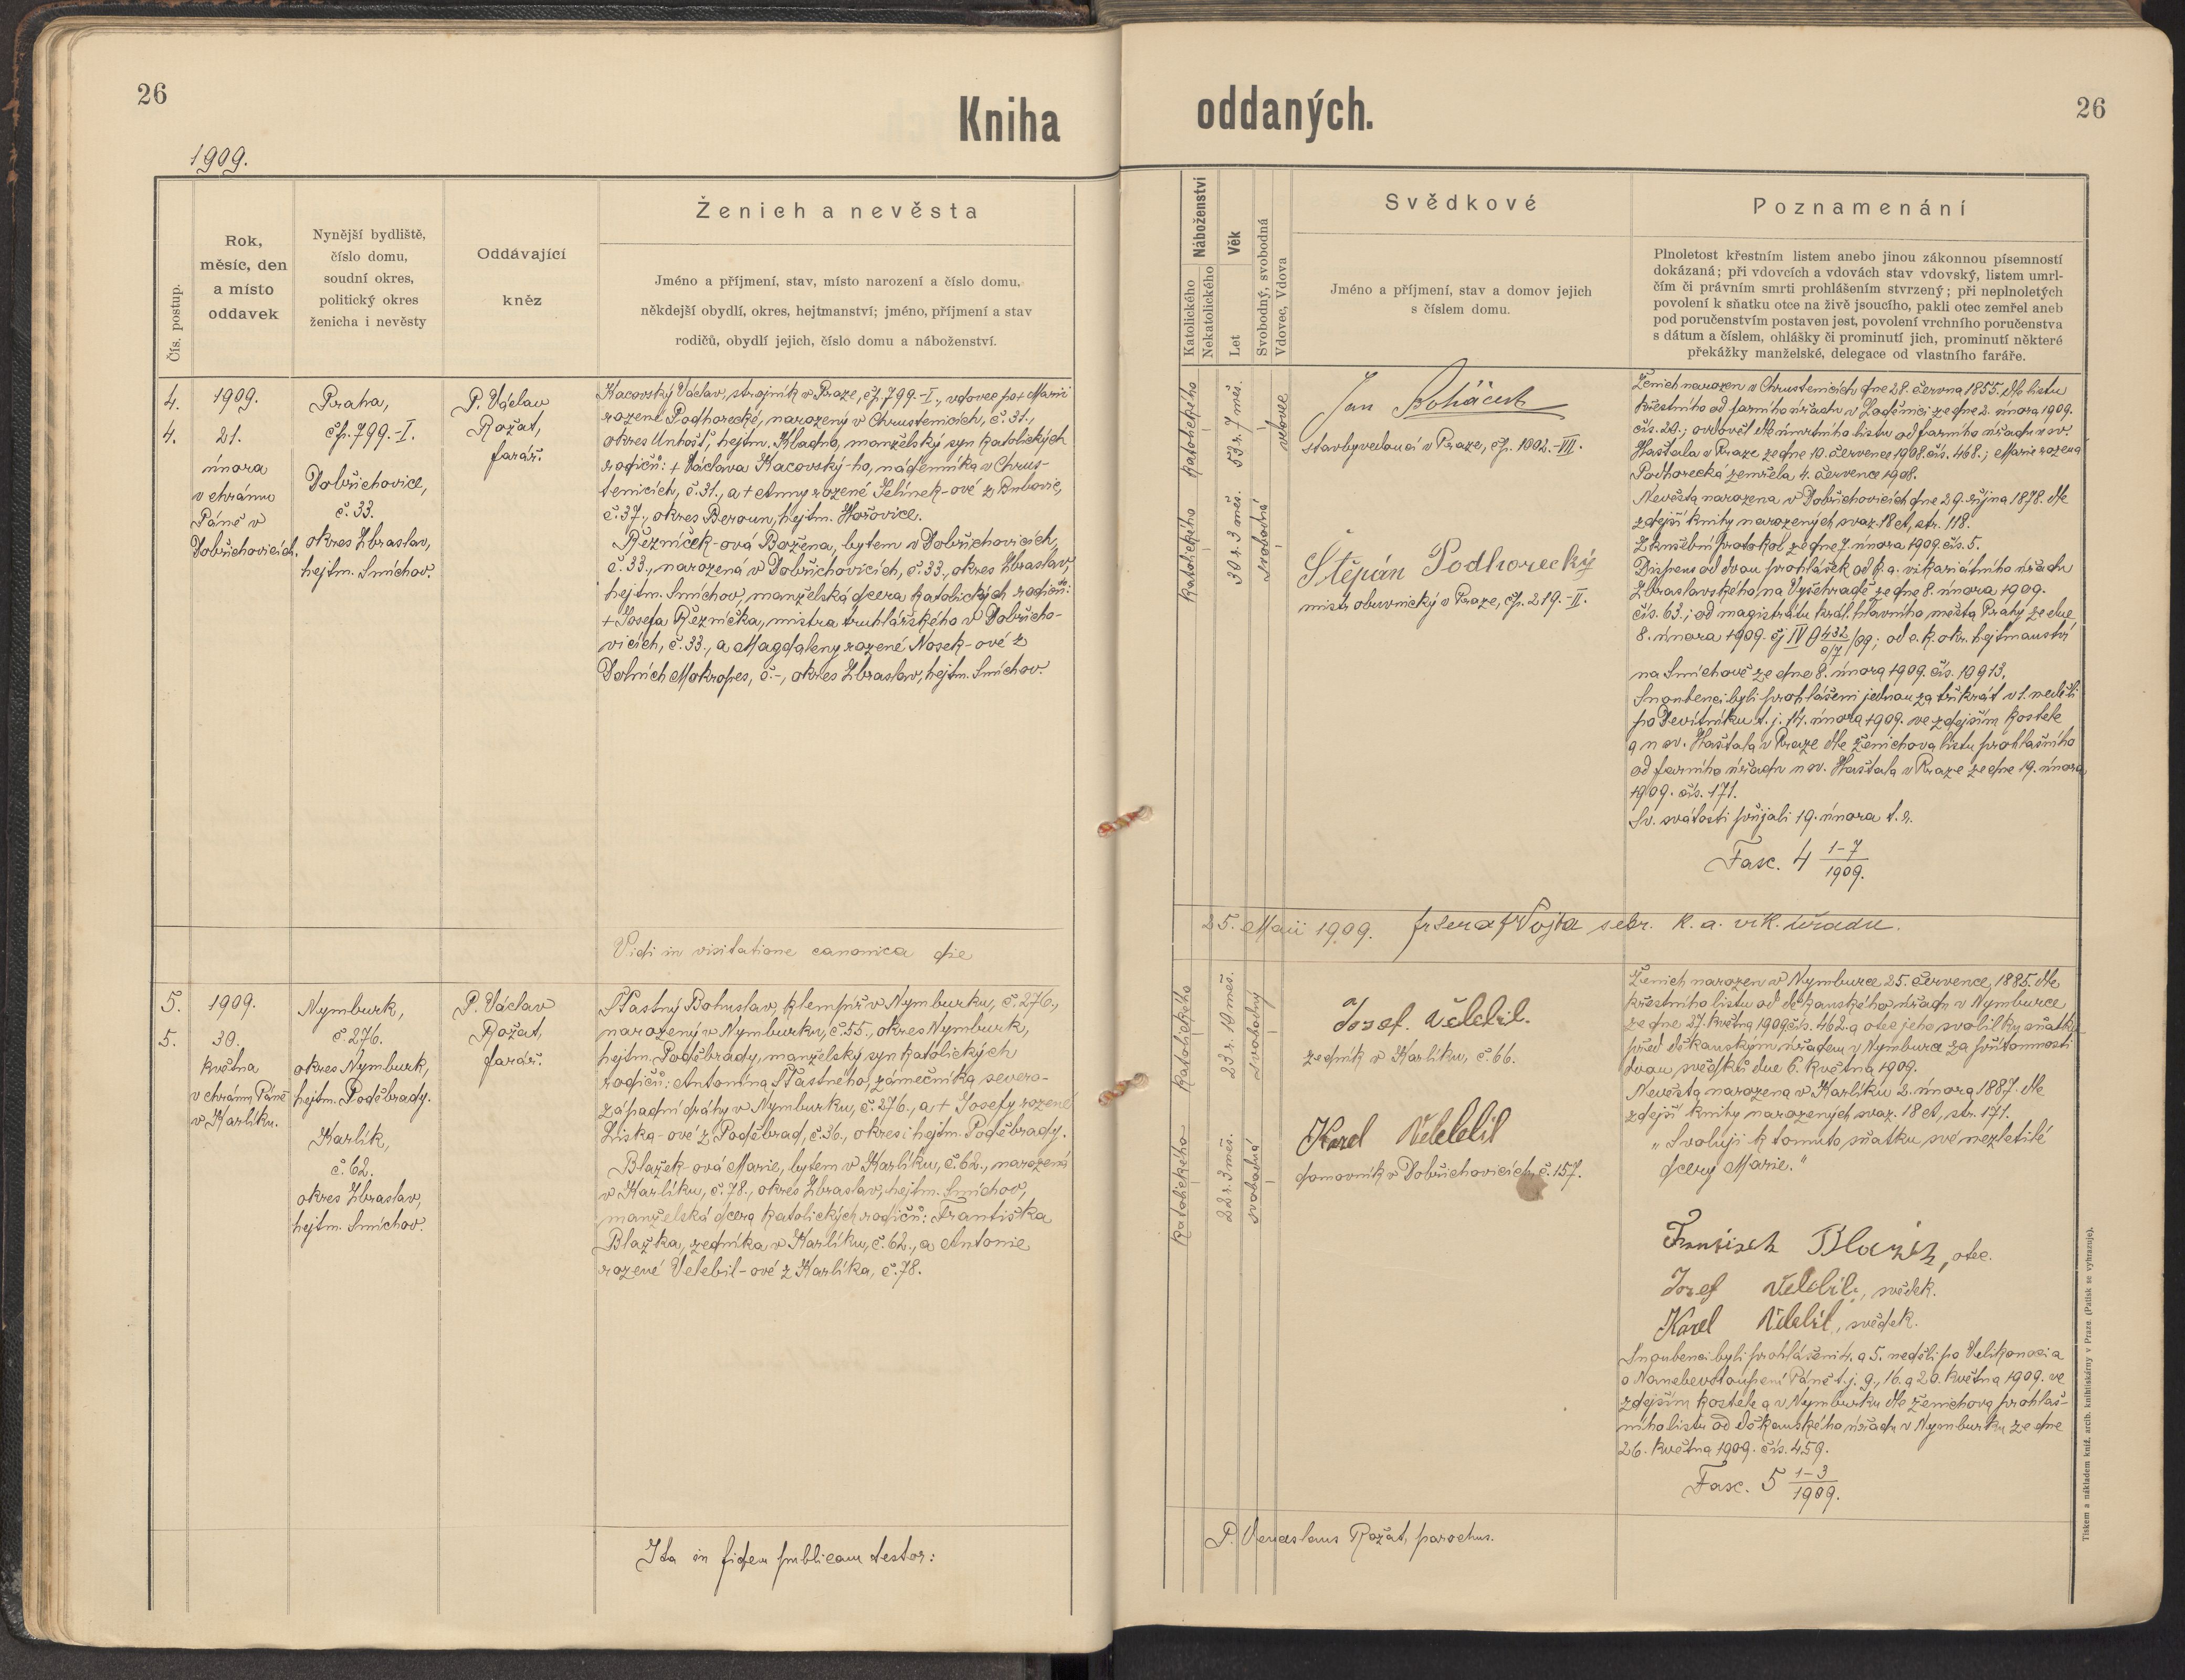 26
Kniha
1909.
Čís. postup.
Rok,
měsíc, den
a místo
oddavek
Nynější bydliště,
číslo domu,
soudní okres,
politický okres
ženicha i nevěsty
Oddávající
kněz
Ženich a nevěsta
Jméno a příjmení, stav, místo narození a číslo domu,
někdejší obydlí, okres, hejtmanství; jméno, příjmení a stav
rodičů, obydlí jejich, číslo domu a náboženství.
4.
4.
1909.
21.
února
v chrámu
Páně v
Dobřichovicích.
Praha,
čp. 799.-I.
Dobřichovice,
č. 33.
okres Zbraslav,
hejtm. Smíchov.
P. Václav
Rožat,
farář.
Kacovský Václav, strojník v Praze, čp. 799.-I., vdovec po + Marii
rozené Podhorecké, narozený v Chrustenicích, č. 31.,
okres Unhošť, hejtm. Kladno, manželský syn katolických
rodičů: + Václava Kacovský-ho, nádenníka v Chrus-
tenicích, č. 31., a + Anny rozené Jelínek-ové z Bubovic,
č. 37., okres Beroun, hejtm. Hořovice.
Řezníček-ová Božena, bytem v Dobřichovicích,
č. 33., narozená v Dobřichovicích, č. 33., okres Zbraslav,
hejtm. Smíchov, manželská dcera katolických rodičů:
+ Josefa Řezníčka, mistra truhlářského v Dobřicho-
vicích, č. 33., a Magdaleny rozené Nosek-ové z
Dolních Mokropes, č. -, okres Zbraslav, hejtm. Smíchov.
Vidi in visitatione canonica die
5.
5.
1909.
30.
května
v chrámu Páně
v Karlíku.
Nymburk,
č. 276.
okres Nymburk,
hejtm. Poděbrady.
Karlík,
č. 62.
okres Zbraslav,
hejtm. Smíchov.
P. Václav
Rožat,
farář.
Šťastný Bohuslav, klempíř v Nymburku, č. 276.,
narozený v Nymburku, č. 55., okres Nymburk,
hejtm. Poděbrady, manželský syn katolických
rodičů: Antonína Šťastného, zámečníka severo-
západní dráhy v Nymburku, č. 276., a + Josefy rozené
Liska-ové z Poděbrad, č. 36., okres i hejtm. Poděbrady.
Blažek-ová Marie, bytem v Karlíku, č. 62., narozená
v Karlíku, č. 78., okres Zbraslav, hejtm. Smíchov,
manželská dcera katolických rodičů: Františka
Blažka, zedníka v Karlíku, č. 62., a Antonie
rozené Velebil-ové z Karlíka, č. 78.
Ita in fidem publicam testor:
oddaných.
26
Náboženství
Katolického
Nekatolického
Věk
Let
Svobodný, svobodná
Vdovec, Vdova
Svědkové
Jméno a příjmení, stav a domov jejich
s číslem domu.
Poznamenání
Plnoletost křestním listem anebo jinou zákonnou písemností
dokázaná; při vdovcích a vdovách stav vdovský, listem umrl-
čím či právním smrti prohlášením stvrzený; při neplnoletých
povolení k sňatku otce na živě jsoucího, pakli otec zemřel aneb
pod poručenstvím postaven jest, povolení vrchního poručenstva
s dátum a číslem, ohlášky či prominutí jich, prominutí některé
překážky manželské, delegace od vlastního faráře.
Katolického
53 r. 7 měs.
vdovec
Katolického
30 r. 3 měs.
svobodná
Jan Boháček
stavbyvedoucí v Praze, čp. 1002.-VII.
Štěpán Podhorecký
mistr obuvnický v Praze, čp. 219.-II.
Ženich narozen v Chrustenicích dne 28. června 1855. dle listu
křestního od farního úřadu v Loděnici ze dne 2. února 1909.
čís. 20.; ovdověl dle úmrtního listu od farního úřadu u sv.
Haštala v Praze ze dne 10. července 1908. čís. 468.; Marie rozená
Podhorecká zemřela 4. července 1908.
Nevěsta narozena v Dobřichovicích dne 29. října 1878. dle
zdejší knihy narozených svaz. 18 et, str. 118.
Zkušební protokol ze dne 7. února 1909. čís. 5.
Dispens od dvou prohlášek od k. a. vikariátního úřadu
Zbraslavského na Vyšehradě ze dne 8. února 1909.
čís. 63.; od magistrátu král. hlavního města Prahy ze dne
8. února 1909. čj IV 432/09; od c. k. okr. hejtmanství
na Smíchově ze dne 8. února 1909. čís. 10913.
Snoubenci byli prohlášeni jednou za třikrát v 1. neděli
po Devítníku t. j. 14. února 1909. ve zdejším kostele
a u sv. Haštala v Praze dle ženichova listu prohlašního
od farního úřadu u sv. Haštala v Praze ze dne 19. února
1909. čís. 171.
Sv. svátosti přijali 19. února t. r.
Fasc. 4 1-7/1909.
25. Maii 1909. Vojta sekr. k. a. vik. úřadu.
Katolického
23 r. 10 měs.
svobodný
Katolického
22 r. 3 měs.
svobodná
Josef Velebil.
zedník v Karlíku, č. 66.
Karel Velebil
domovník v Dobřichovicích, č. 157.
Ženich narozen v Nymburce 25. července 1885. dle
křestního listu od děkanského úřadu v Nymburce
ze dne 27. května 1909 čís. 462. a otec jeho svolil ku sňatku
před děkanským úřadem v Nymburce za přítomnosti
dvou svědků dne 6. května 1909.
Nevěsta narozena v Karlíku 2. února 1887. dle
zdejší knihy narozených svaz. 18 et, str. 171.
„Svoluji k tomuto sňatku své nezletilé
dcery Marie.“
František Blažek, otec.
Josef Velebil, svědek.
Karel Velebil, svědek.
Snoubenci byli prohlášeni 4. a 5. neděli po Velikonoci a
o Nanebevstoupení Páně t. j. 9., 16. a 20. května 1909. ve
zdejším kostele a v Nymburku dle ženichova prohlaš-
ního listu od děkanského úřadu v Nymburku ze dne
26. května 1909. čís. 459.
Fasc. 5 1-3/1909.
P. Venceslaus Rožat, parochus.
Tiskem a nákladem kníž. arcib. knihtiskárny v Praze. (Patisk se vyhrazuje).